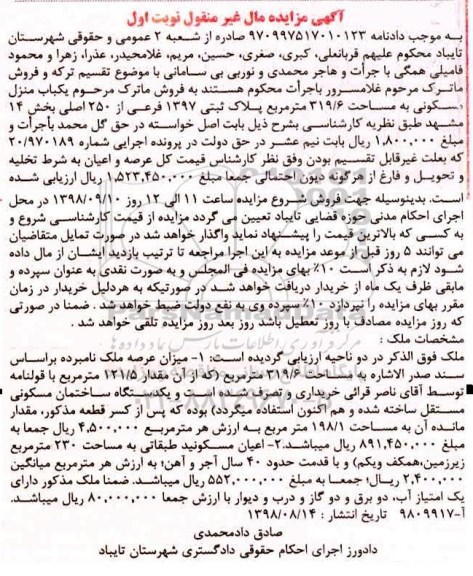 آگهی مزایده مال غیر منقول نوبت اول
به موجب دادنامه ۹۷۰۹۹۷۵۱۷۰۱۰۱۲۳ صادره از شعبه ۲ عمومی و حقوقی شهرستان
تایباد محکوم علیهم قربانعلی، کبری، صغری، حسین، مریم، غلامحیدر، عذرا، زهرا و محمود
فامیلی همگی با جرأت و هاجر محمدی و نوربی بی سامانی با موضوع تقسیم ترکه و فروش
ماترک مرحوم غلامسرور باجرأت محکوم هستند به فروش ماترک مرحوم یکباب منزل
مسکونی به مساحت ۳۱۹/۶ مترمربع پلاک ثبتی ۱۳۹۷ فرعی از ۲۵۰ اصلی بخش ۱۴
مشهد طبق نظریه کارشناسی بشرح ذیل بابت اصل خواسته در حق گل محمد بأجرأت و
مبلغ ۱,۸۰۰,۰۰۰ ریال بابت نیم عشر در حق دولت در پرونده اجرایی شماره ۲۰/۹۷۰۱۸۹
که بعلت غیرقابل تقسیم بودن وفق نظر کارشناس قیمت کل عرصه و اعیان به شرط تخلیه
و تحویل و فارغ از هرگونه دیون احتمالی جمعا مبلغ ۱,۵۲۳,۴۵۰,۰۰۰ ریال ارزیابی شده
است. بدینوسیله جهت فروش شروع مزایده ساعت ۱۱ الی ۱۲ روز ۱۳۹۸/۰۹/۱۰ در محل
اجرای احکام مدنی حوزه قضایی تایباد تعیین می گردد مزایده از قیمت کارشناسی شروع و
به کسی که بالاترین قیمت را پیشنهاد نماید واگذار خواهد شد در صورت تمایل متقاضیان
می توانند ۵ روز قبل از موعد مزایده به این اجرا مراجعه تا ترتیب بازدید ایشان از مال داده
شود لازم به ذکر است ۱۰٪ بهای مزایده فی المجلس و به صورت نقدی به عنوان سپرده و
مابقی ظرف یک ماه از خریدار دریافت خواهد شد در صورتیکه به هردلیل خریدار در زمان
مقرر بهای مزایده را نپردازد ۱۰٪ سپرده وی به نفع دولت ضبط خواهد شد . ضمنا در صورتی
که روز مزایده مصادف با روز تعطیل باشد روز بعد روز مزایده تلقی خواهد شد .
مشخصات ملک :
ملک فوق الذکر در دو ناحیه ارزیابی گردیده است: ۱- میزان عرصه ملک نامبرده براساس
سند صدر الاشاره به مساحت ۳۱۹/۶ مترمربع (که از آن مقدار ۱۲۱/۵ مترمربع با قولنامه
توسط آقای ناصر قرائی خریداری و تصرف شده است و یکدستگاه ساختمان مسکونی
مستقل ساخته شده و هم اکنون استفاده میگردد) بوده که پس از کسر قطعه مذکور، مقدار
مانده آن به مساحت ۱۹۸/۱ متر مربع به ارزش هر مترمربع ۴,۵۰۰,۰۰۰ ریال جمعا به
مبلغ ۸۹۱,۴۵۰,۰۰۰ ریال میباشد.۲- اعیان مسکونید طبقاتی به مساحت ۲۳۰ مترمربع
زیرزمین،همکف ویکم) و با قدمت حدود ۴۰ سال آجر و آهن؛ به ارزش هر مترمربع میانگین
۲,۴۰۰,۰۰۰ ریال؛ جمعا به مبلغ ۵۵۲,۰۰۰,۰۰۰ ریال میباشد. ضمنا ملک مذکور دارای
یک امتیاز آب، دو برق و دو گاز و درب و دیوار با ارزش جمعا ۸۰,۰۰۰,۰۰۰ ریال میباشد.
آ-۹۸۰۹۹۱۷ تاریخ انتشار : ۱۳۹۸/۰۸/۱۴
صادق دادمحمدی
دادورز اجرای احکام حقوقی دادگستری شهرستان تایباد